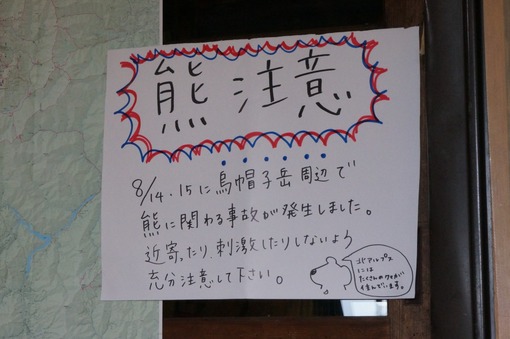 熊 注意
8/14.15に烏帽子岳周辺で
熊に関わる事故が発生しました。
近寄ったり、刺激したりしないよう
充分注意して下さい。
北アルプス
には
たくさんのクマが
住んでいます。